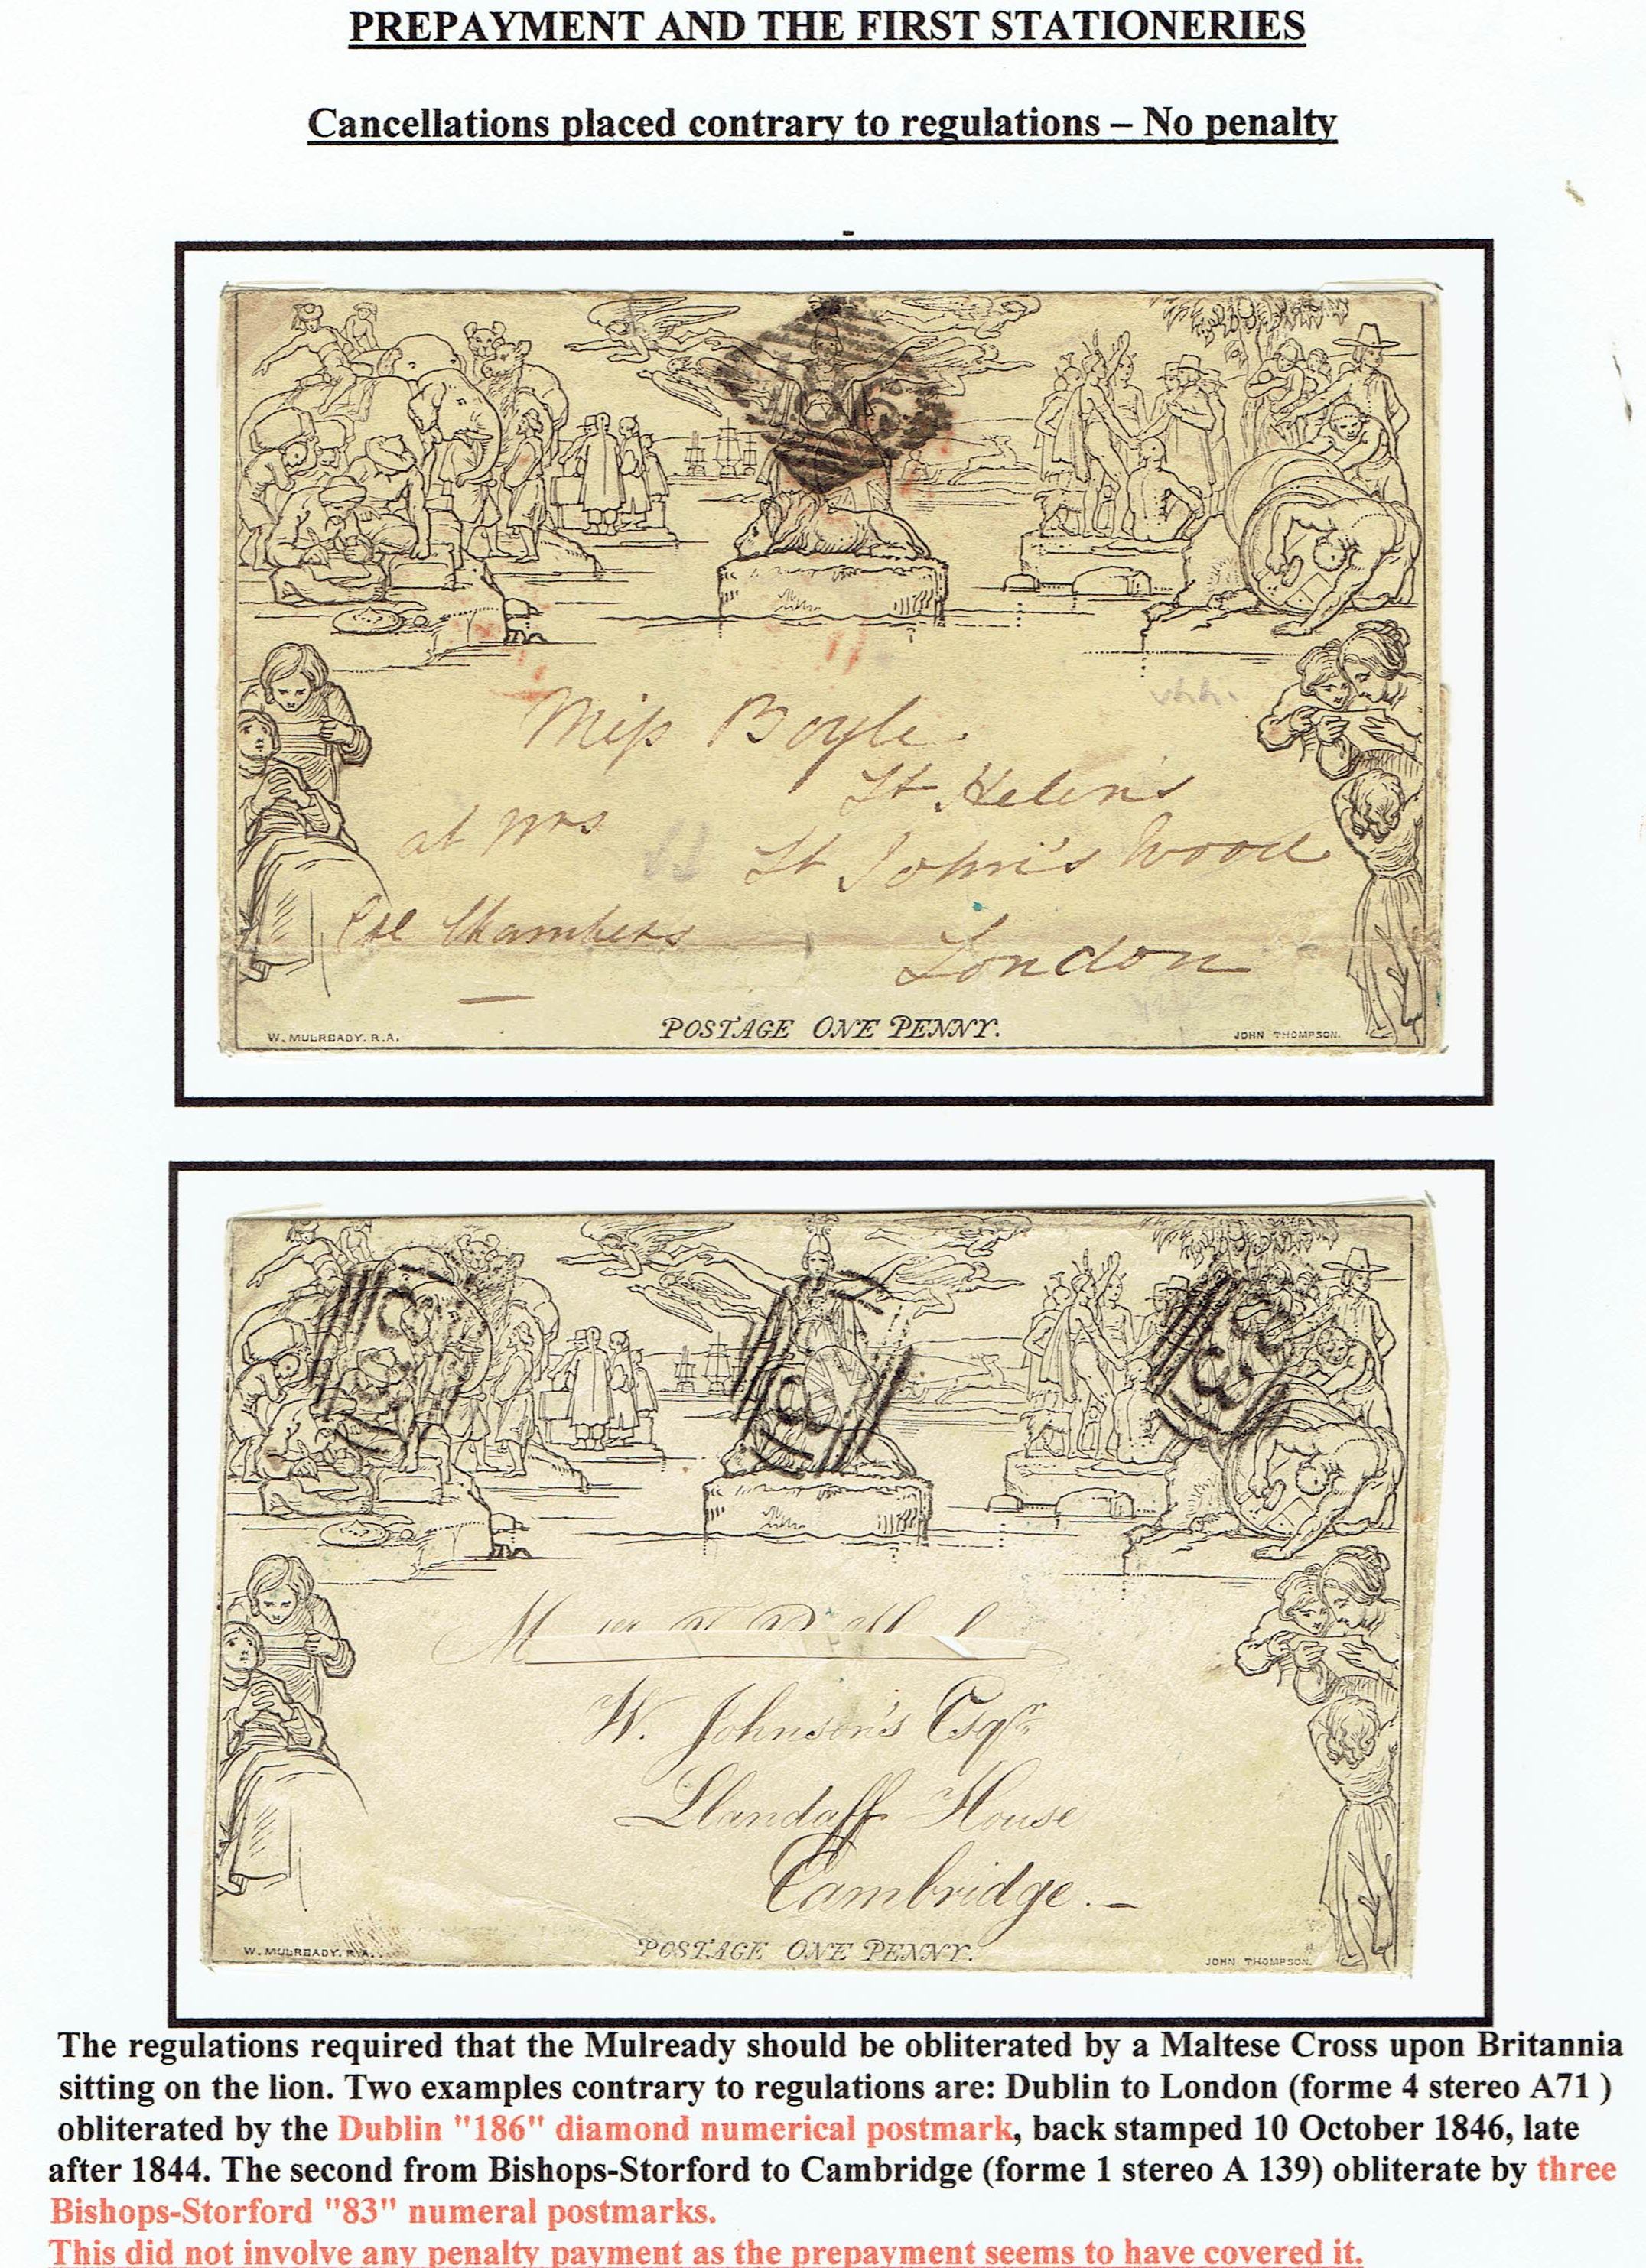 PREPAYMENT AND THE FIRST STATIONERIES
Cancellations placed contrary to regulations – No penalty
Miss Boyle
St. Helen's
at Mrs
St John's Wood
Col Chambers
London
POSTAGE ONE PENNY.
W. MULREADY. R.A.
JOHN THOMPSON.
W. Johnson's Esqre
Llandaff House
Cambridge. –
POSTAGE ONE PENNY.
W. MULREADY. R.A.
JOHN THOMPSON.
The regulations required that the Mulready should be obliterated by a Maltese Cross upon Britannia
sitting on the lion. Two examples contrary to regulations are: Dublin to London (forme 4 stereo A71 )
obliterated by the Dublin "186" diamond numerical postmark, back stamped 10 October 1846, late
after 1844. The second from Bishops-Storford to Cambridge (forme 1 stereo A 139) obliterate by three
Bishops-Storford "83" numeral postmarks.
This did not involve any penalty payment as the prepayment seems to have covered it.